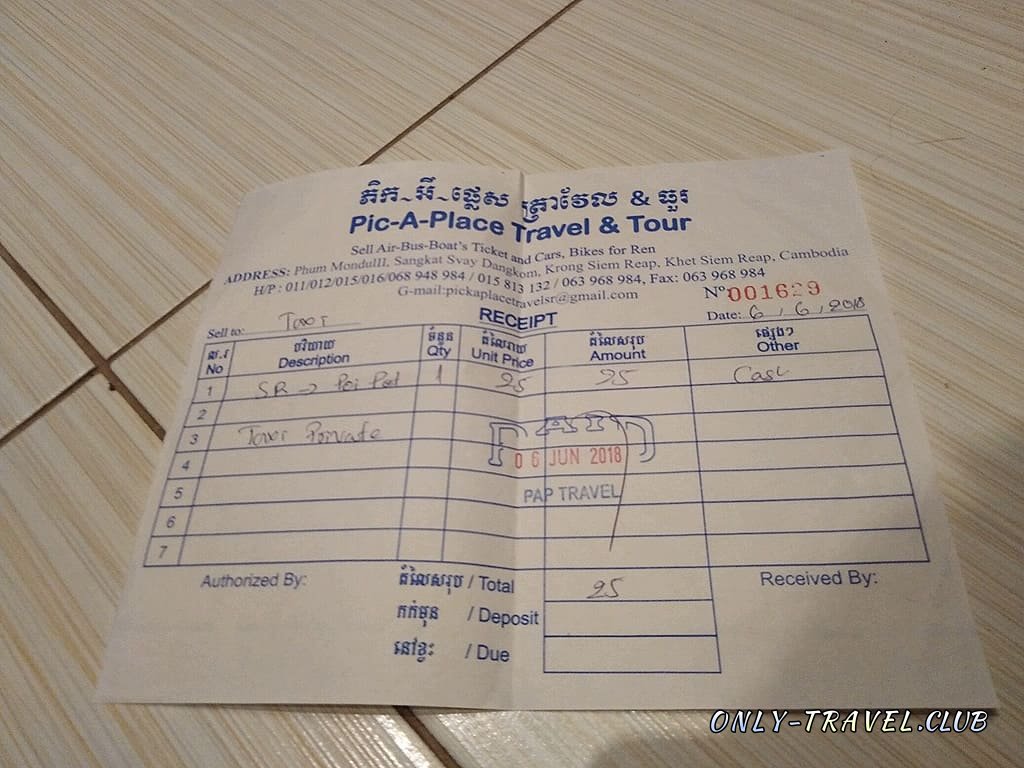 ភិក~អឺ~ផ្លេស ត្រាវែល & ធួរ
Pic-A-Place Travel & Tour
Sell Air-Bus-Boat's Ticket and Cars, Bikes for Ren
ADDRESS: Phum MondulIII, Sangkat Svay Dangkom, Krong Siem Reap, Khet Siem Reap, Cambodia
H/P : 011/012/015/016/068 948 984 / 015 813 132 / 063 968 984, Fax: 063 968 984
G-mail:pickaplacetravelsr@gmail.com
Nº 001629
Sell to:
RECEIPT
Date: 6, 6, 2018
ល.រ បរិយាយ ចំនួន តំលៃរាយ តំលៃសរុប ផ្សេងៗ
No Description Qty Unit Price Amount Other
1 SR → Poi Pet 1 25 25 Cash
2
3
PAID
4
06 JUN 2018
5
PAP TRAVEL
6
7
Authorized By:
តំលៃសរុប / Total 25
Received By:
កក់មុន / Deposit
នៅខ្វះ / Due
ONLY-TRAVEL.CLUB